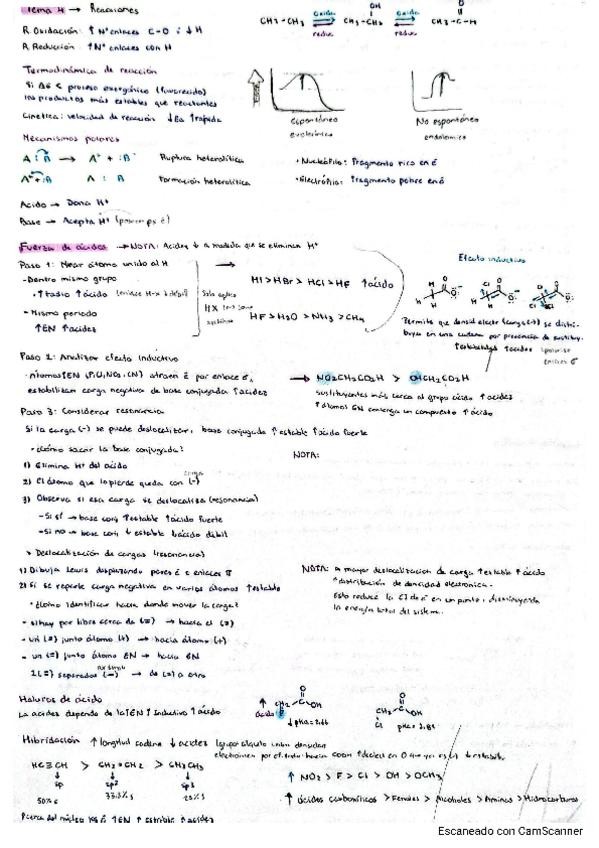 Tema 4 → Reacciones
R. Oxidación: ↑ Nº enlaces C-O ; ↓ H
R. Reducción: ↑ Nº enlaces con H
CH3-CH3 Oxida reduc CH3-CH2 OH Oxida reduc CH3-C-H O
Termodinámica de reacción
Si ΔG < proceso exergónico (favorecido)
los productos más estables que reactantes
Cinética: velocidad de reacción ↓Ea ↑rápida
Espontáneo
No espontáneo
Mecanismos polares
A:B → A+ + :B- Ruptura heterolítica
A+ + :B A:B Formación heterolítica
• Nucleófilo: Fragmento rico en é
• Electrófilo: Fragmento pobre en é
Acido → Dona H+
Base → Acepta H+
Fuerza de ácidos → NOTA: Acidez ↓ a medida que se eliminan H+
Paso 1: Mirar átomo unido al H
- Dentro mismo grupo
• ↑radio ↑ácido
- Mismo periodo
↑EN ↑acidez
Solo aplica
HX
→
HI > HBr > HCl > HF ↑ácido
HF > H2O > NH3 > CH4
Efecto inductivo
Permite que densid electr (carga(-)) se distri-
buya en una cadena por presencia de sustituy.
↑estabilidad ↑acidez
enlaces σ
Paso 2: Analizar efecto inductivo
• Átomos ↑EN (F, Cl, NO2, CN) atraen é por enlace σ,
estabilizan carga negativa de base conjugada ↑acidez
→ NO2CH2CO2H > OHCH2CO2H
sustituyentes más cerca al grupo ácido ↑acidez
↑átomos EN contenga un compuesto ↑ácido
Paso 3: Considerar resonancia
Si la carga (-) se puede deslocalizar, base conjugada ↑estable ↑ácido fuerte
• ¿Cómo sacar la base conjugada?
NOTA:
1) Elimina H+ del ácido
2) El átomo que lo pierde queda con carga (-)
3) Observa si esa carga se deslocaliza (resonancia)
- Si sí → base conj ↑estable ↑ácido fuerte
- Si no → base conj ↓ estable ↓ácido débil
> Deslocalización de cargas (resonancia)
1) Dibuja Lewis desplazando pares é o enlaces π
2) Si se reparte carga negativa en varios átomos ↑estable
NOTA: a mayor deslocalización de carga ↑estable ↑ácido
↑distribución de densidad electrónica.
Esto reduce la [] de é en un punto, distribuyendo
la energía total del sistema.
• ¿Cómo identificar hacia donde mover la carga?
- si hay par libre cerca de (=) → hacia el (=)
- un (=) junto átomo (+) → hacia átomo (+)
- un (=) junto átomo EN → hacia EN
2 (=) separados (-) → de (=) a otro
Haluros de ácido
La acidez depende de la ↑EN ↑Inductivo ↑ácido
↑ácido CH2 F C O OH ↓pKa = 2.66
CH2 Cl C O OH pKa = 2.85
Hibridación ↑longitud cadena ↓acidez
HC≡CH > CH2=CH2 > CH3CH3
sp sp2 sp3
50% s 33.3% s 25% s
↑ NO2 > F > Cl > OH > OCH3
↑ Ácidos carboxílicos > Fenoles > Alcoholes > Aminas > Hidrocarburos
↑cerca del núcleo ↑% s ↑EN ↑estable ↑acidez
Escaneado con CamScanner